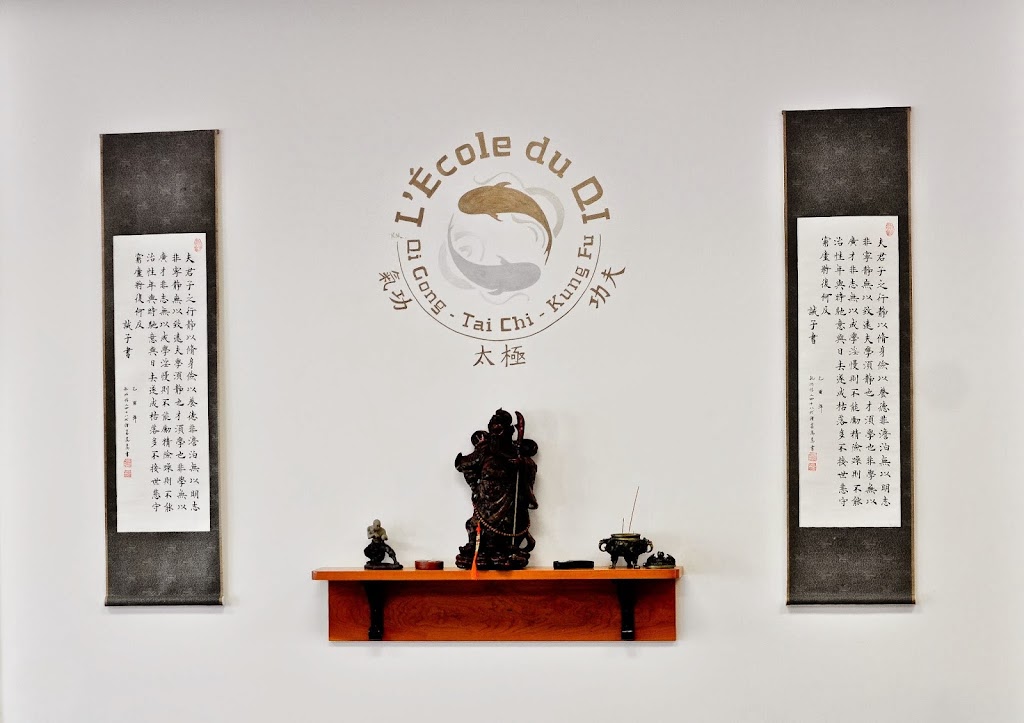 L'École du QI
Qi Gong - Tai Chi - Kung Fu
氣功
功夫
太極
夫君子之行靜以脩身儉以養德非澹泊無以明志
非寧靜無以致遠夫學須靜也才須學也非學無以
廣才非志無以成學淫慢則不能勵精險躁則不能
治性年與時馳意與日去遂成枯落多不接世悲守
窮廬將復何及
誡子書
乙酉年
夫君子之行靜以脩身儉以養德非澹泊無以明志
非寧靜無以致遠夫學須靜也才須學也非學無以
廣才非志無以成學淫慢則不能勵精險躁則不能
治性年與時馳意與日去遂成枯落多不接世悲守
窮廬將復何及
誡子書
乙酉年